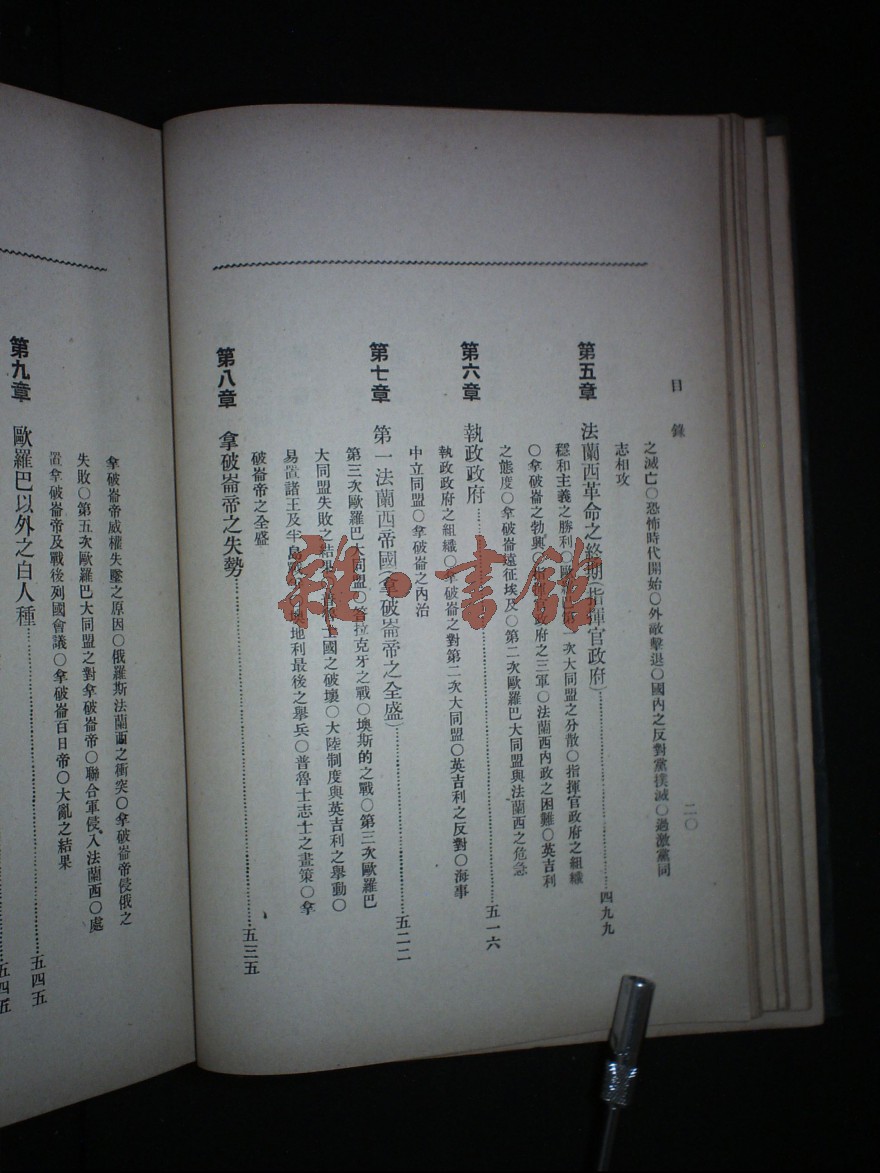 目錄
二〇
之滅亡〇恐怖時代開始〇外敵擊退〇國內之反對黨撲滅〇過激黨同
志相攻
第五章 法蘭西革命之終期(指揮官政府)……四九九
穩和主義之勝利〇歐羅巴第一次大同盟之分散〇指揮官政府之組織
〇拿破崙之勃興〇指揮官政府之三軍〇法蘭西內政之困難〇英吉利
之態度〇拿破崙遠征埃及〇第二次歐羅巴大同盟與法蘭西之危急
第六章 執政政府……五一六
執政政府之組織〇拿破崙之對第二次大同盟〇英吉利之反對〇海事
中立同盟〇拿破崙之內治
第七章 第一法蘭西帝國(拿破崙帝之全盛)……五二二
第三次歐羅巴大同盟〇答拉克牙之戰〇墺斯的之戰〇第三次歐羅巴
大同盟失敗之結果〇普魯士國之破壞〇大陸制度與英吉利之舉動〇
易置諸王及半島戰爭〇墺地利最後之舉兵〇普魯士志士之畫策〇拿
破崙帝之全盛
第八章 拿破崙帝之失勢……五三五
拿破崙帝威權失墜之原因〇俄羅斯法蘭西之衝突〇拿破崙帝侵俄之
失敗〇第五次歐羅巴大同盟之對拿破崙帝〇聯合軍侵入法蘭西〇處
置拿破崙帝及戰後列國會議〇拿破崙百日帝〇大亂之結果
第九章 歐羅巴以外之白人種……五四五
五四五
雜·書館